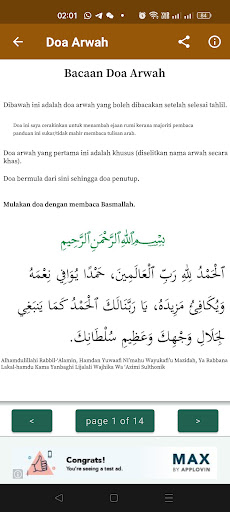 02:01
84
Doa Arwah
Bacaan Doa Arwah
Dibawah ini adalah doa arwah yang boleh dibacakan setelah selesai tahlil.
Doa ini saya serahkan untuk menambah ejaan rumi kerana majoriti pembaca
panduan ini sukar/tidak mahir membaca tulisan arab.
Doa arwah yang pertama ini adalah khusus (diselitkan nama arwah secara
khas).
Doa bermula dari sini sehingga doa penutup.
Mulakan doa dengan membaca Basmallah.
بِسْمِ اللَّهِ الرَّحْمَنِ الرَّحِيمِ
الْحَمْدُ لِلَّهِ رَبِّ الْعَالَمِينَ، حَمْدًا يُوَافِي نِعَمَهُ
وَيُكَافِئُ مَزِيدَهُ، يَا رَبَّنَالَكَ الْحَمْدُ كَمَا يَنبَغِي
لِجَلَالِ وَجْهِكَ وَعَظِيمِ سُلْطَانِكَ.
Alhamdulillahi Rabbil-'Alamin, Hamdan Yuwaafi Ni'mahu Wayukafi'u Mazidah, Ya Rabbana
Lakal-hamdu Kama Yanbaghi Lijalali Wajhika Wa 'Azimi Sulthonik
<
page 1 of 14
>
Congrats!
You're seeing a test ad.
MAX
BY APPLOVIN